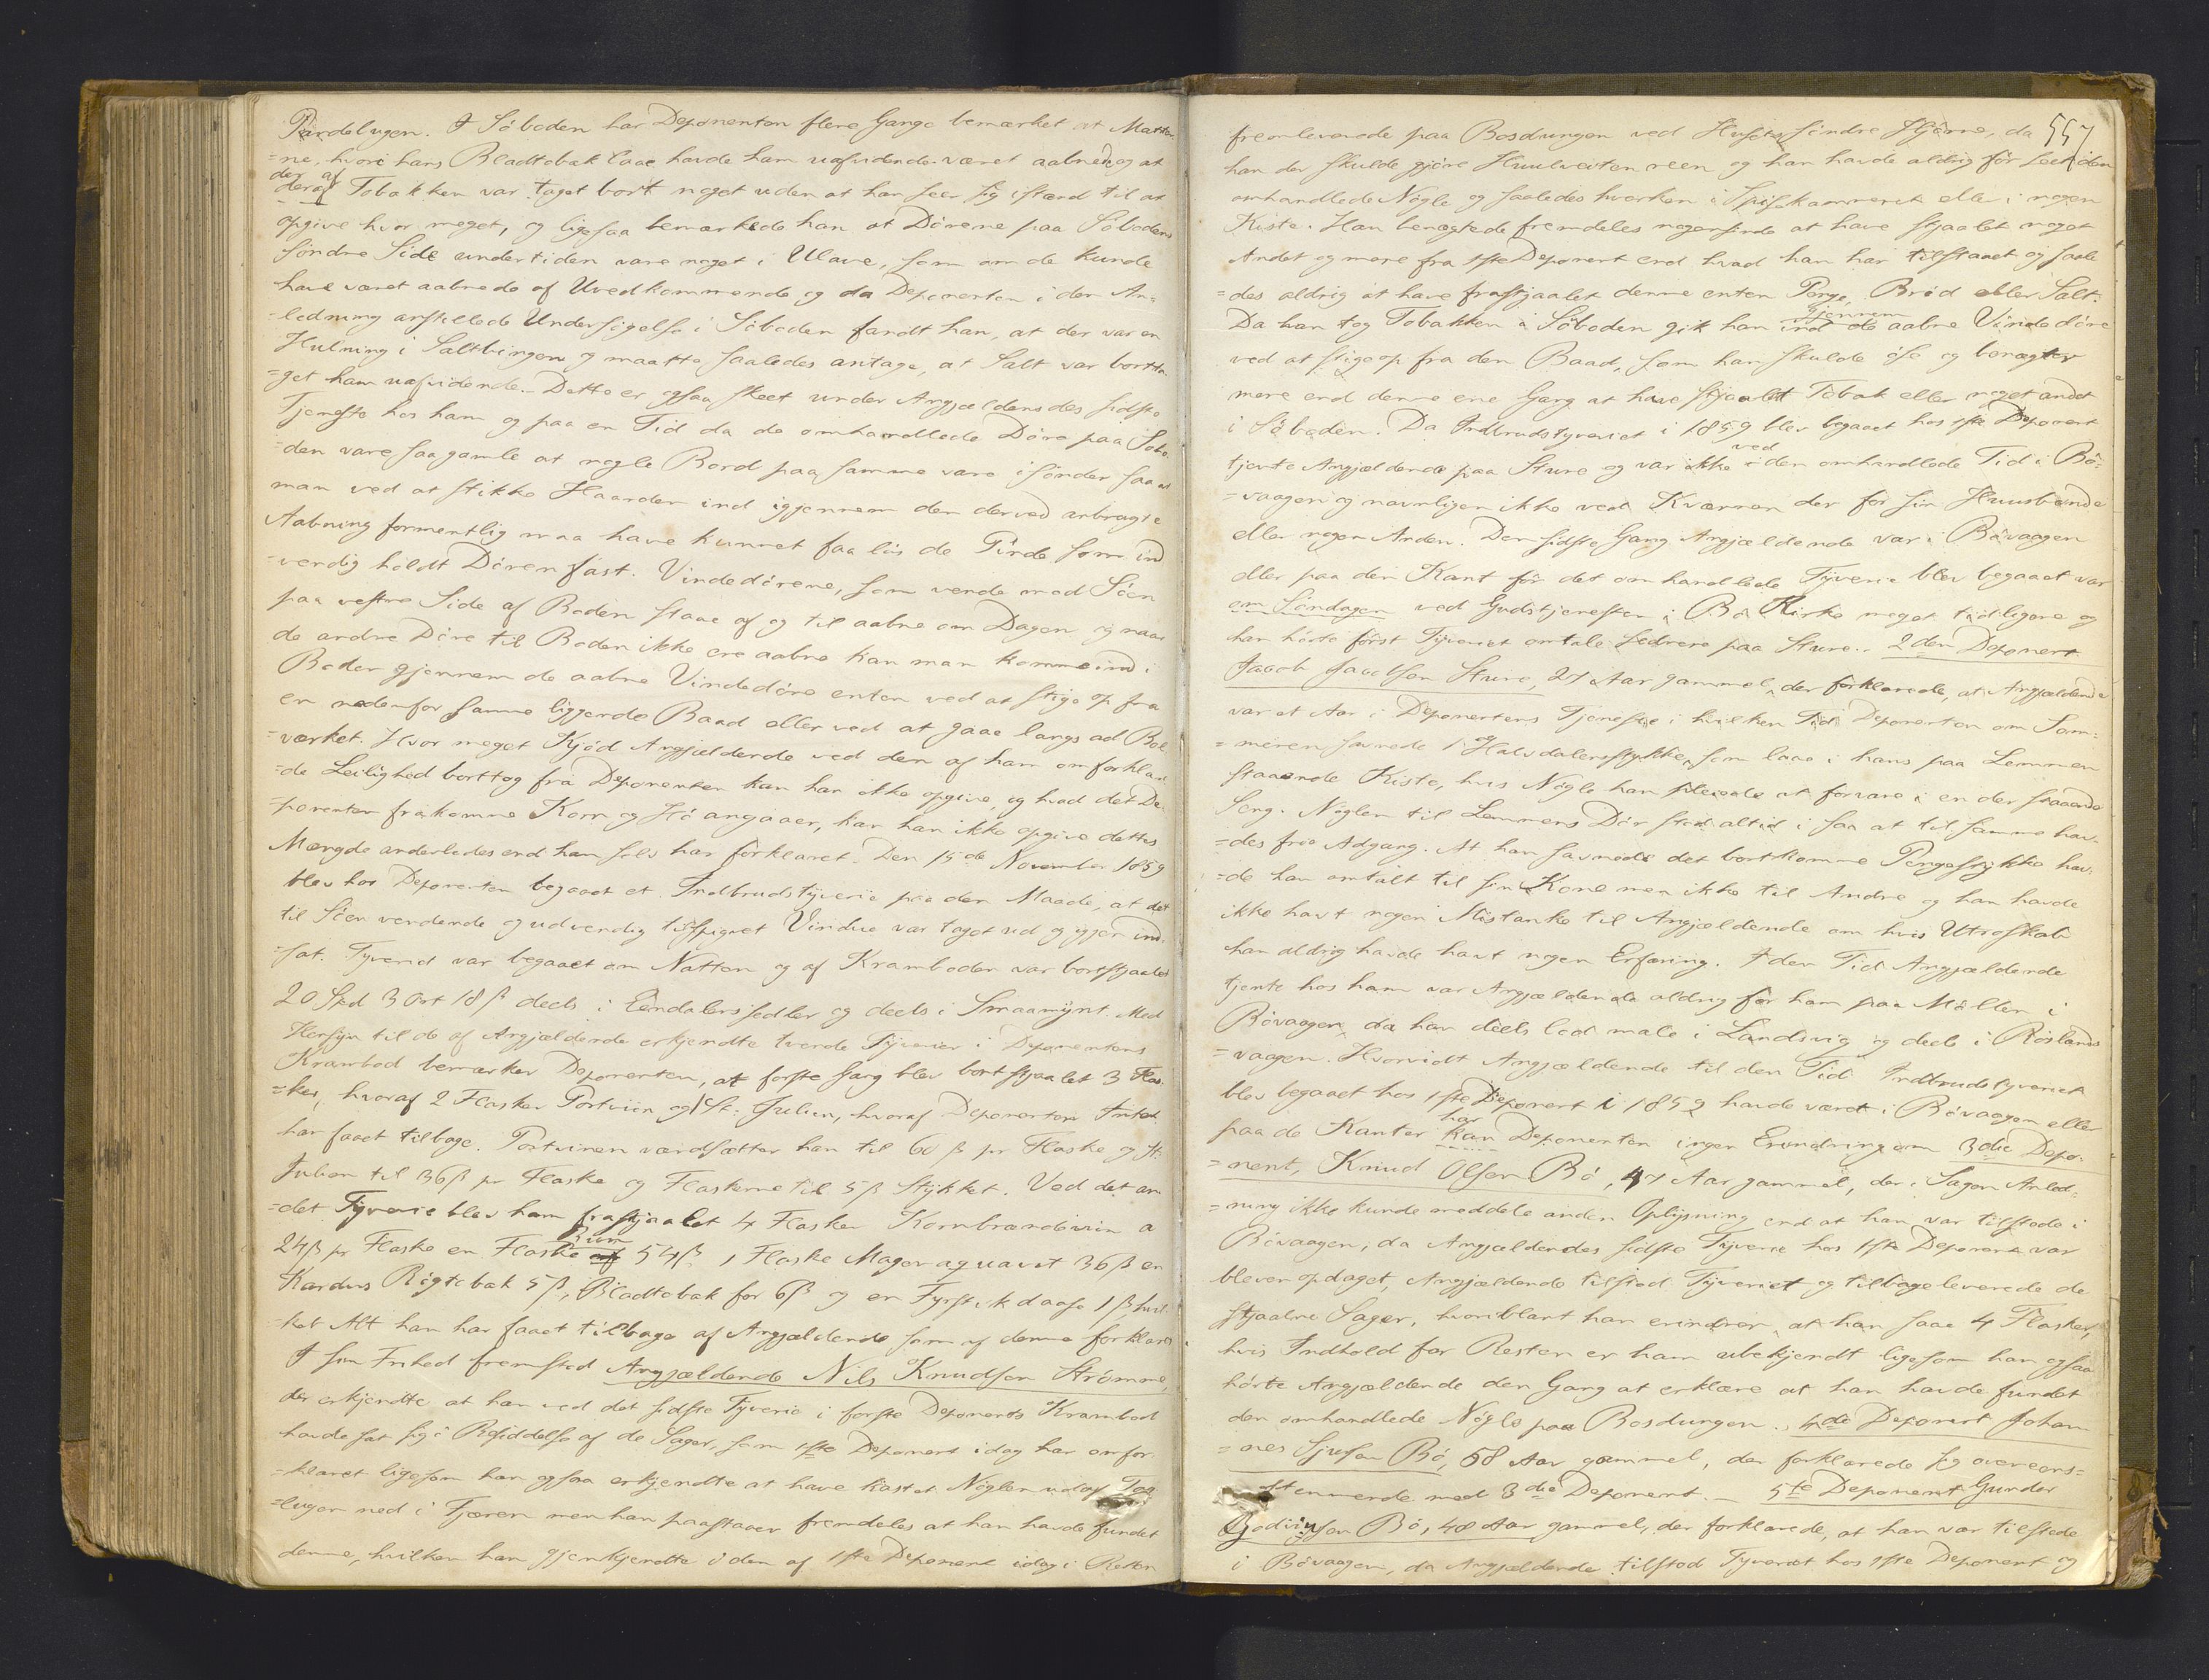 Pærdelugen. I Söboden har Deponenten flere Gange bemærket at Matter-
=ne, hvori hans Bladtobak laae havde ham uafvidende været aabnede og at
der af Tobakken var taget bort noget uden at han seer sig istand til at
opgive hvor meget, og ligesaa bemærkede han at Dörene paa Söbodens
söndre Side undertiden vare noget i Ulave, som om de kunde
have været aabnede af Uvedkommende og da Deponenten i den An=
=ledning anstillede Undersögelse i Söboden fandt han, at der var en
Hulning i Saltbingen og maatte saaledes antage, at Salt var bortta-
=get ham uafvidende. Dette er ogsaa skeet under Angjældendes sidste
Tjeneste hos ham og paa en Tid da de omhandlede Döre paa Söbo-
=den vare saa gamle at nogle Bord paa samme vare isönder saa at
man ved at stikke Haanden ind igjennem den derved anbragte
Aabning formentlig maa have kunnet faa lös de Tinde som ind
=vendig holdt Dören fast. Vindedörene, som vende mod Söen
paa vestre Side af Boden staae af og til aabne om Dagen og naar
de andre Döre til Boden ikke ere aabne kan man komme ind i
Boden gjennem de aabne Vindedöre enten ved at stige op fra
en nedenfor samme liggende Baad eller ved at gaae langs ad Bol-
=værket. Hvor meget Kjöd Angjældende ved den af ham omforklare-
=de Leilighed borttog fra Deponenten kan han ikke opgive, og hvad det De-
=ponenten frakomne Korn og Hö angaaer, kan han ikke opgive dettes
Mængde anderledes end han selv har forklaret. Den 15de November 1859
blev hos Deponenten begaaet et Indbrudstyverie paa den Maade, at det
til Söen vendende og udvendig tilspigret Vindue var taget ud og igjen ind-
=sat. Tyveriet var begaaet om Natten og af Kramboden var bortstjaalet
20 Spd 3 Ort 18 ß deels i Eendalerssedler og deels i Smaamynt. Med
Hensyn til de af Angjældende erkjendte tvende Tyverier i Deponentens
Krambod bemærker Deponenten, at forste Gang blev bortstjaalet 3 Flas-
=ker, hvoraf 2 Flasker Portviin og 1 St: Julien, hvoraf Deponenten Intet
har faaet tilbage. Portvinen værdsætter han til 60 ß pr Flaske og St:
Julien til 36 ß pr Flaske og Flaskerne til 5 ß Stykket. Ved det an-
=det Tyverie blev ham frastjaalet 4 Flasker Kornbrændeviin a
24 ß pr Flaske en Flaske Rum 54 ß, 1 Flaske Magenaquavit 36 ß en
Kardus Rögtobak 5 ß, Bladtobak for 6 ß og en Fyrstikdaase 1 ß, hvil-
=ket Alt han har faaet tilbage af Angjældende som af denne forklaret
I sin Frihed fremstod Angjældende Nils Knudsen Strömme,
der erkjendte at han ved det sidste Tyverie i forste Deponents Krambod
havde sat sig i Besiddelse af de Sager, som 1ste Deponent idag har omfor-
=klaret ligesom han ogsaa erkjendte at have kastet Nöglen ud af
=lugen ned i Fjæren men han paastaaer fremdeles at han havde fundet
denne, hvilken han gjenkjendte i den af 1ste Deponent idag i Retten
557
fremleverede paa Bosdungen ved Husets söndre Hjörne, da
han der skulde gjöre Huulveiten reen og han havde aldrig för seet den
omhandlede Nögle og saaledes hverken i Spisekammeret eller i nogen
Kiste. Han benægtede fremdeles nogensinde at have stjaalet noget
Andet og mere fra 1ste Deponent end hvad han har tilstaaet og saale
=des aldrig at have frastjaalet denne enten Penge, Bröd eller Salt.
Da han tog Tobakken i Söboden gik han gjennem de aabne Vindedöre
ved at stige op fra den Baad, som han skulde öse og benægter
mere end denne ene Gang at have stjaalet Tobak eller noget andet
i Söboden. Da Indbrudstyveriet i 1859 blev begaaet hos 1ste Deponent
tjente Angjældende paa Sture og var ikke ved den omhandlede Tid i Bö-
=vaagen og navnligen ikke ved Kværnen der for sin Huusbonde
eller nogen Anden. Den sidste Gang Angjældende var i Bövaagen
eller paa den Kant för det omhandlede Tyverie blev begaaet var
om Söndagen ved Gudstjenesten i Bö Kirke noget tidligere og
han hörte först Tyveriet omtale sednere paa Sture. 2den Deponent
Jacob Jacobsen Sture, 27 Aar gammel, der forklarede, at Angjældende
var et Aar i Deponentens Tjeneste i hvilken Tid Deponenten om Som=
=meren savnede 1 Halvdalersstykke, som laae i hans paa Lemmen
staaende Kiste, hvis Nögle han pleiede at forvare i en der staaende
Seng. Nöglen til Lemmens Dör stod altid i saa at til samme hav-
=des frie Adgang. At han savnede det bortkomne Pengestykke hav-
=de han omtalt til sin Kone men ikke til Andre og han havde
ikke havt nogen Mistanke til Angjældende om hvis Utroskab
han aldrig havde havt nogen Erfaring. I den Tid Angjældende
tjente hos ham var Angjældende aldrig for ham paa Möllen i
Bövaagen, da han deels lod male i Landsvig og deels i Röslands
=vaagen. Hvorvidt Angjældende til den Tid Indbrudstyveriet
blev begaaet hos 1ste Deponent i 1859 havde været i Bövaagen eller
paa de Kanter har Deponenten ingen Erindring om 3die Depo-
=nent, Knud Olsen Bö, 47 Aar gammel, der i Sagen Anled-
=ning ikke kunde meddele anden Oplysning end at han var tilstede i
Bövaagen, da Angjældendes sidste Tyverie hos 1ste Deponent var
bleven opdaget, Angjældende tilstod Tyveriet og tilbageleverede de
stjaalne Sager, hvoriblant han erindrer, at han saae 4 Flasker,
hvis Indhold for Resten er ham ubekjendt ligesom han ogsaa
hörte Angjældende den Gang at erklære at han havde fundet
den omhandlede Nögle paa Bosdungen. 4de Deponent Johan-
=nes Sjursen Bö, 58 Aar gammel, der forklarede sig overeens=
stemmende med 3die Deponent. — 5te Deponent Gunder
Bö, 48 Aar gammel, der forklarede, at han var tilstede
i Bövaagen, da Angjældende tilstod Tyveriet hos 1ste Deponent og